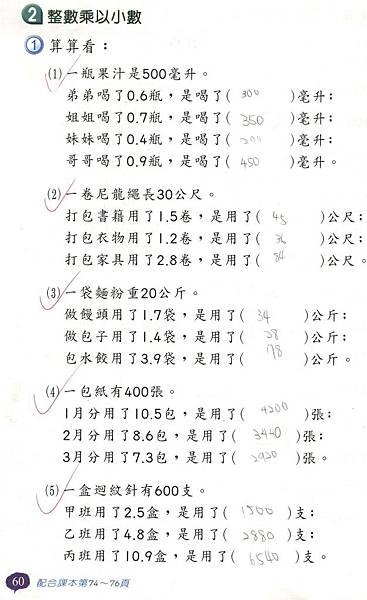 2 整數乘以小數
1 算算看：
(1)一瓶果汁是500毫升。
弟弟喝了0.6瓶，是喝了( 300 )毫升；
姐姐喝了0.7瓶，是喝了( 350 )毫升；
妹妹喝了0.4瓶，是喝了( 200 )毫升；
哥哥喝了0.9瓶，是喝了( 450 )毫升。
(2)一卷尼龍繩長30公尺。
打包書籍用了1.5卷，是用了( 45 )公尺；
打包衣物用了1.2卷，是用了( 36 )公尺；
打包家具用了2.8卷，是用了( 84 )公尺。
(3)一袋麵粉重20公斤。
做饅頭用了1.7袋，是用了( 34 )公斤；
做包子用了1.4袋，是用了( 28 )公斤；
包水餃用了3.9袋，是用了( 78 )公斤。
(4)一包紙有400張。
1月分用了10.5包，是用了( 4200 )張；
2月分用了8.6包，是用了( 3440 )張；
3月分用了7.3包，是用了( 2920 )張。
(5)一盒迴紋針有600支。
甲班用了2.5盒，是用了( 1500 )支；
乙班用了4.8盒，是用了( 2880 )支；
丙班用了10.9盒，是用了( 6540 )支。
60 配合課本第74～76頁